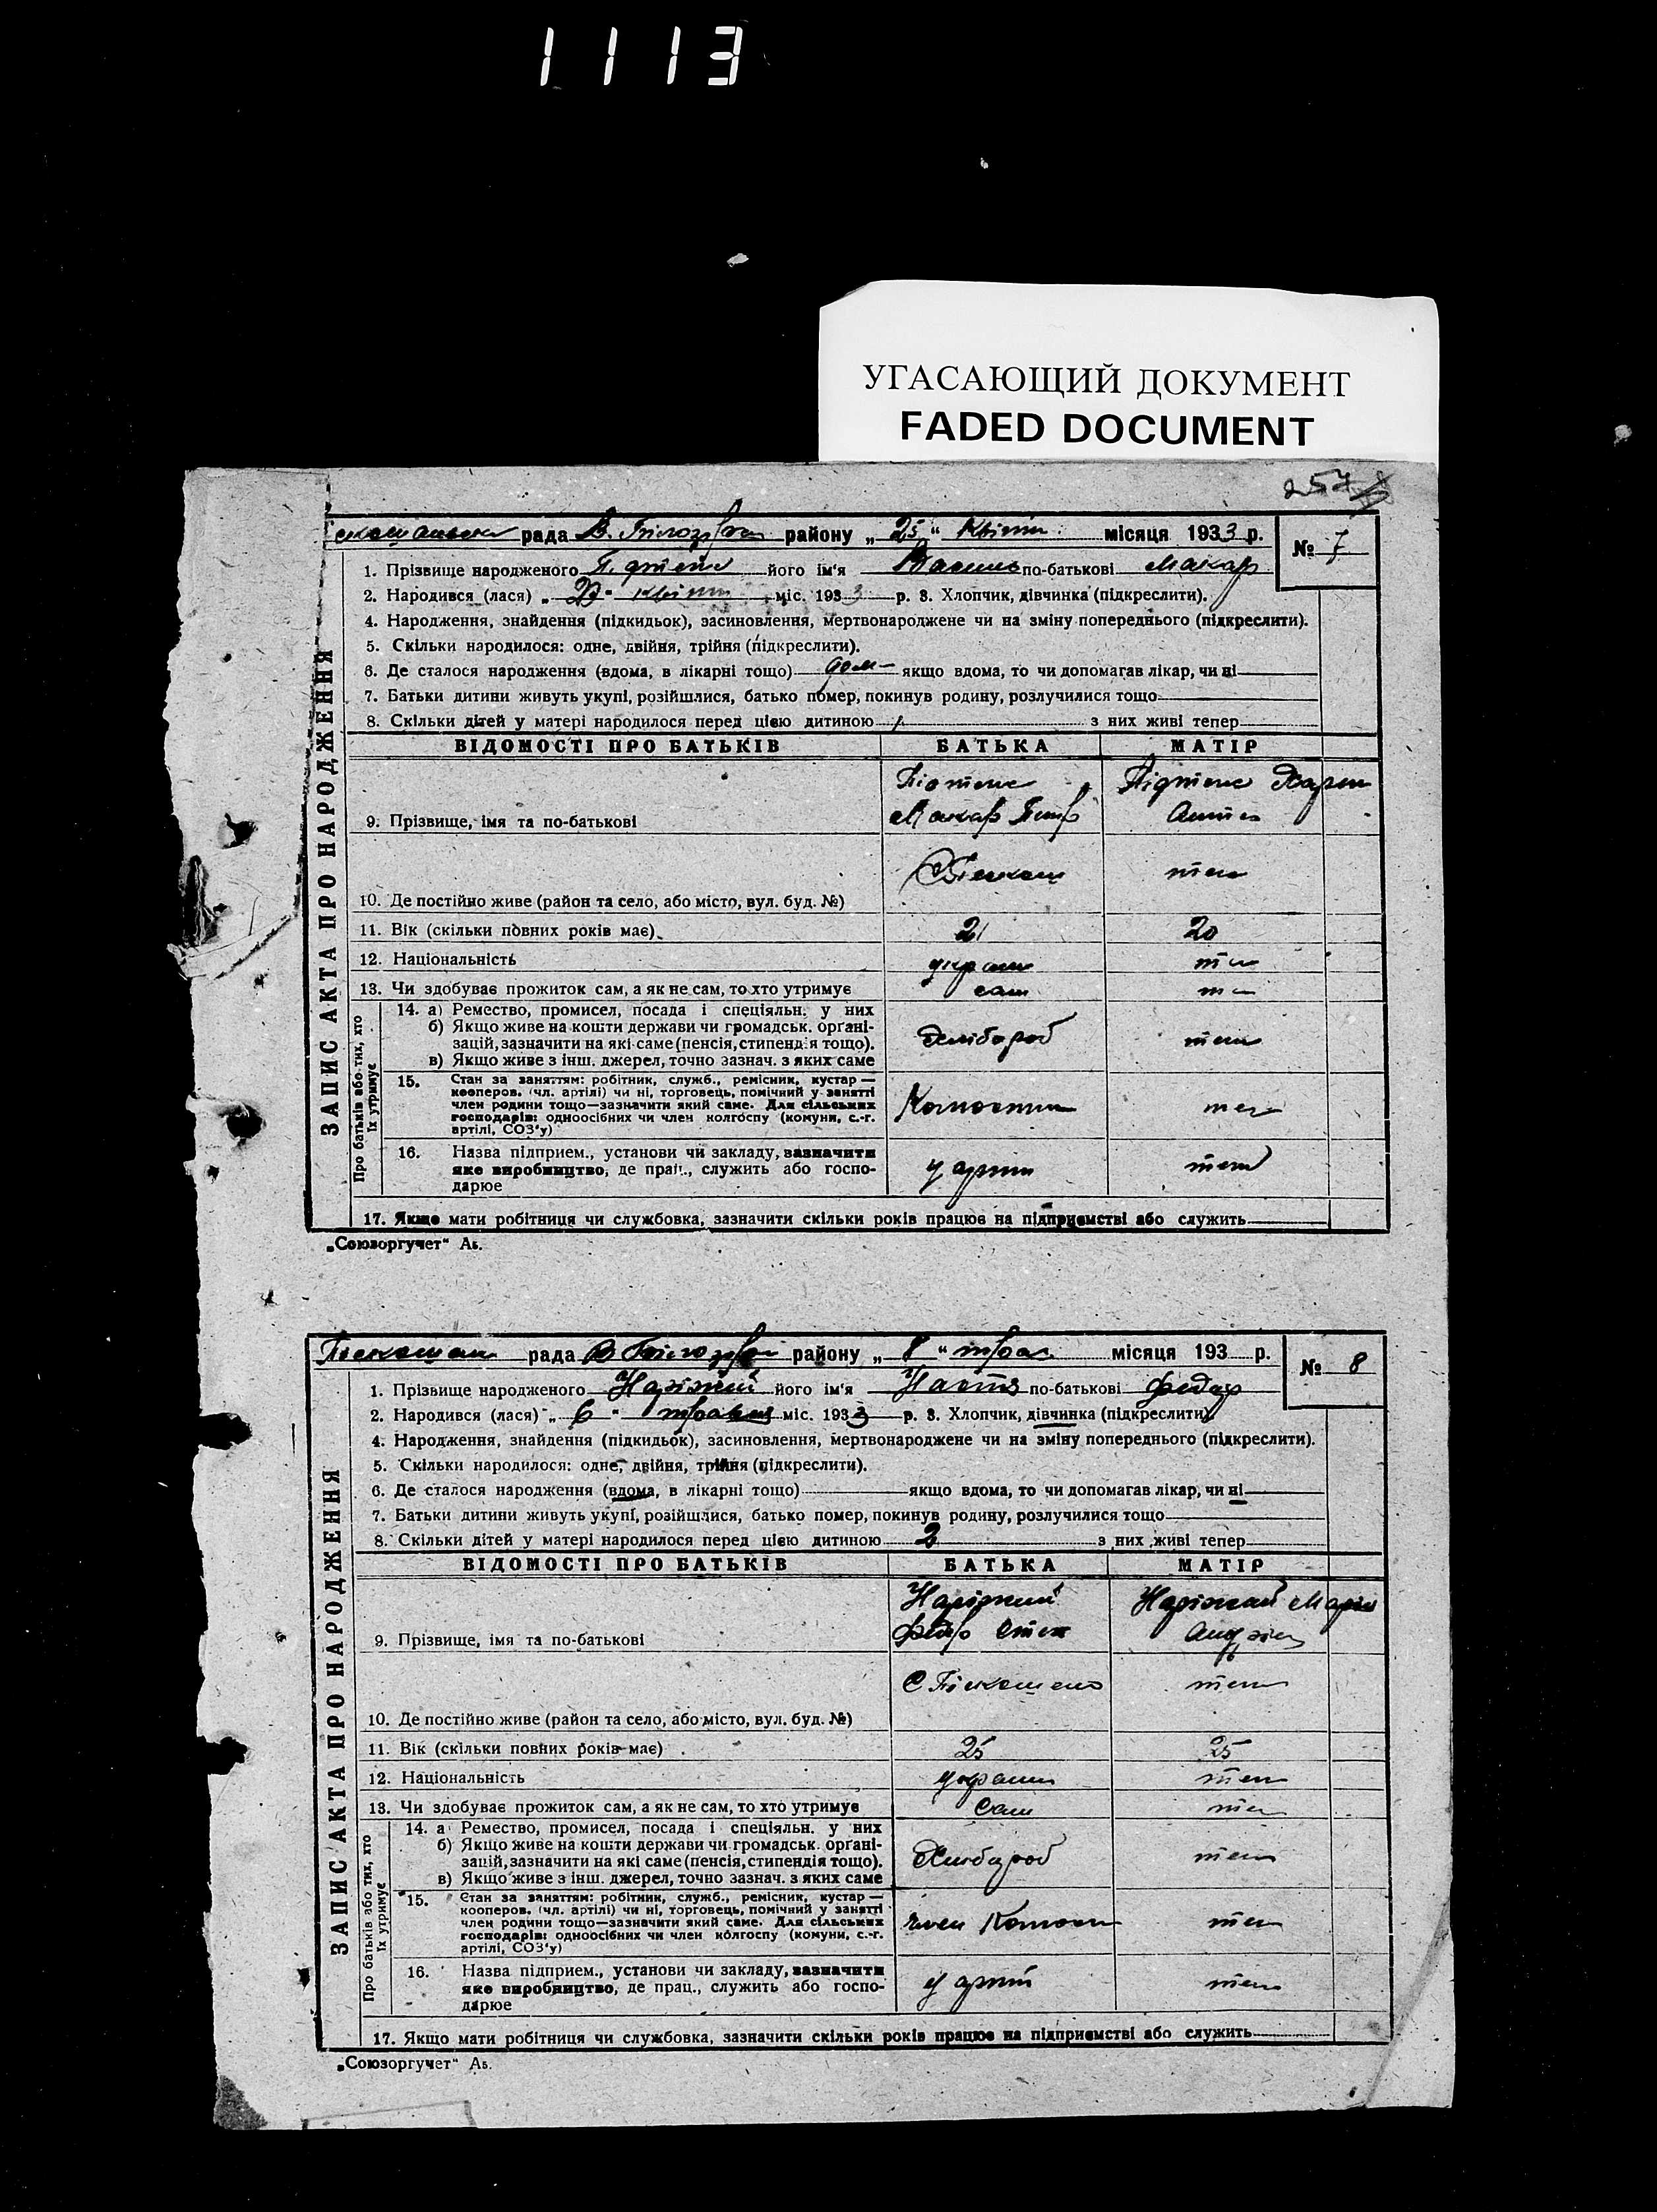 1113
УГАСАЮЩИЙ ДОКУМЕНТ
FADED DOCUMENT
257
рада В. Білозір району „ 25 “ квітн місяця 1933 р.
№ 7
1. Прізвище народженого його ім'я Василь по-батькові Макар
2. Народився (лася) „ “ квітн міс. 1933 р. 3. Хлопчик, дівчинка (підкреслити).
4. Народження, знайдення (підкидьок), засиновлення, мертвонароджене чи на зміну попереднього (підкреслити).
5. Скільки народилося: одне, двійня, трійня (підкреслити).
6. Де сталося народження (вдома, в лікарні тощо) дом якщо вдома, то чи допомагав лікар, чи ні
7. Батьки дитини живуть укупі, розійшлися, батько помер, покинув родину, розлучилися тощо
8. Скільки дітей у матері народилося перед цією дитиною 1 з них живі тепер
ЗАПИС АКТА ПРО НАРОДЖЕННЯ
ВІДОМОСТІ ПРО БАТЬКІВ БАТЬКА МАТІР
9. Прізвище, імя та по-батькові Макар Петр
10. Де постійно живе (район та село, або місто, вул. буд. №)
11. Вік (скільки повних років має) 21 20
12. Національність україн теж
13. Чи здобуває прожиток сам, а як не сам, то хто утримує сам теж
Про батьків або тих, хто їх утримує
14. а) Ремество, промисел, посада і спеціяльн. у них
б) Якщо живе на кошти держави чи громадськ. орґані-
зацій, зазначити на які саме (пенсія, стипендія тощо). Хлібороб теж
в) Якщо живе з інш. джерел, точно зазнач. з яких саме
15. Стан за заняттям: робітник, служб., ремісник, кустар —
кооперов. (чл. артілі) чи ні, торговець, помічний у занятті
член родини тощо—зазначити який саме. Для сільських
господарів: одноосібних чи член колгоспу (комуни, с.-г.
артілі, СОЗ'у)
16. Назва підприєм., установи чи закладу, зазначити
яке виробництво, де прац., служить або госпо- у артіл теж
дарює
17. Якщо мати робітниця чи службовка, зазначити скільки років працює на підприємстві або служить
„Союзоргучет“ А5.
рада В Білозір району „ 8 “ трав місяця 193 р.
№ 8
1. Прізвище народженого Наріжний його ім'я Настя по-батькові Федор
2. Народився (лася) „ 6 “ травня міс. 1933 р. 3. Хлопчик, дівчинка (підкреслити).
4. Народження, знайдення (підкидьок), засиновлення, мертвонароджене чи на зміну попереднього (підкреслити).
5. Скільки народилося: одне, двійня, трійня (підкреслити).
6. Де сталося народження (вдома, в лікарні тощо) якщо вдома, то чи допомагав лікар, чи ні
7. Батьки дитини живуть укупі, розійшлися, батько помер, покинув родину, розлучилися тощо
8. Скільки дітей у матері народилося перед цією дитиною 2 з них живі тепер
ЗАПИС АКТА ПРО НАРОДЖЕННЯ
ВІДОМОСТІ ПРО БАТЬКІВ БАТЬКА МАТІР
Наріжний Наріжний Марія
9. Прізвище, імя та по-батькові Федор Степ
10. Де постійно живе (район та село, або місто, вул. буд. №)
11. Вік (скільки повних років має) 25 25
12. Національність україн теж
13. Чи здобуває прожиток сам, а як не сам, то хто утримує сам теж
Про батьків або тих, хто їх утримує
14. а) Ремество, промисел, посада і спеціяльн. у них
б) Якщо живе на кошти держави чи громадськ. орґані-
зацій, зазначити на які саме (пенсія, стипендія тощо). Хлібороб теж
в) Якщо живе з інш. джерел, точно зазнач. з яких саме
15. Стан за заняттям: робітник, служб., ремісник, кустар —
кооперов. (чл. артілі) чи ні, торговець, помічний у занятті
член родини тощо—зазначити який саме. Для сільських член теж
господарів: одноосібних чи член колгоспу (комуни, с.-г.
артілі, СОЗ'у)
16. Назва підприєм., установи чи закладу, зазначити
яке виробництво, де прац., служить або госпо- у артіл теж
дарює
17. Якщо мати робітниця чи службовка, зазначити скільки років працює на підприємстві або служить
„Союзоргучет“ А5.